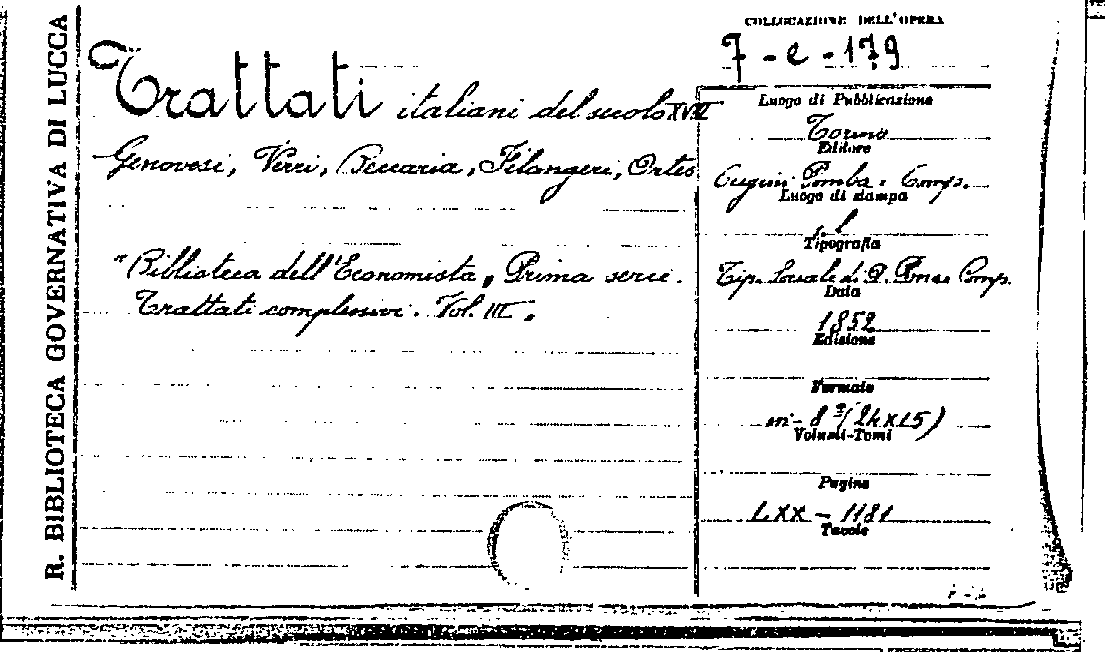 R. BIBLIOTECA GOVERNATIVA DI LUCCA
COLLOCAZIONE DELL'OPERA
7 - e - 179
Trattati italiani del secolo XVIII
Genovesi, Verri, Beccaria, Filangeri, Ortes
"Biblioteca dell'Economista, Prima serie.
Trattati complessivi. Vol. III".
Luogo di Pubblicazione
Torino
Editore
Cugini Pomba e Comp.
Luogo di stampa
s. l.
Tipografia
Tip. Sociale di Comp.
Data
1852
Edizione
Formato
in - 8° (24x15)
Volumi-Tomi
Pagine
LXX - 1181
Tavole